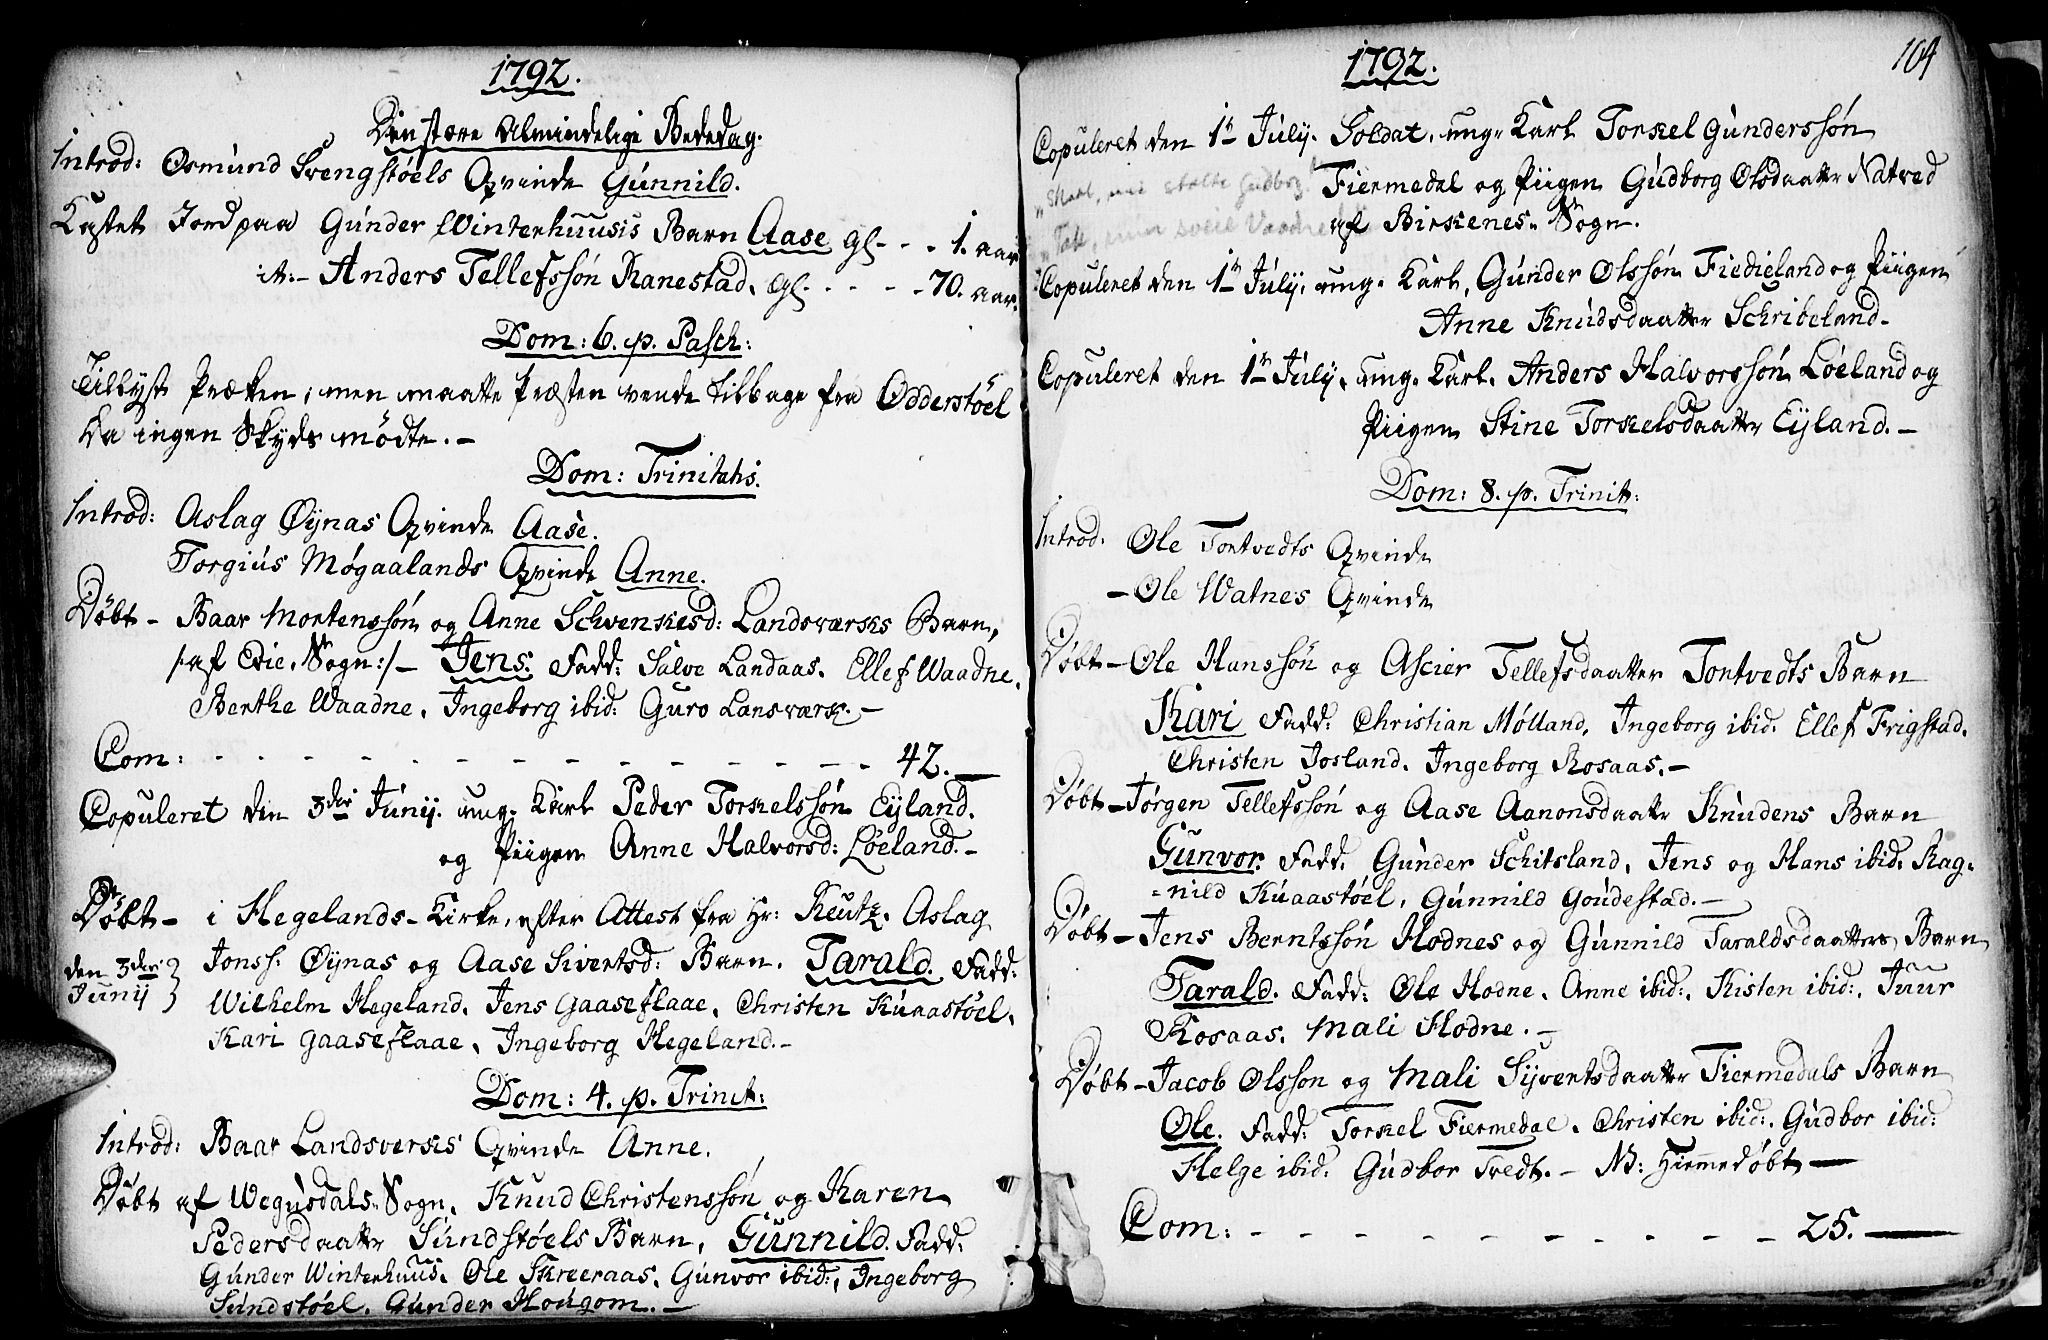 1792.
Den store Almindelige Bededag.
Introd: Osmund Svengstøels Qvinde Gunnild.
Kastet Jord paa Gunder Winterhuusis Barn Aase gl. - - 1. aar
it: - Anders Tellefssøn Ranestad, gl. - - - - 70. aar.
Dom: 6. p. Pasch:
Tillyst Præken; men maatte Præsten vende tilbage fra Odderstøel
da ingen Skyds mødte. -
Dom: Trinitatis.
Introd: Aslag Øynas Qvinde Aase.
Torgius Møgaalands Qvinde Anne.
Døbt - Baar Mortenssøn og Anne Schvenkesd: Landsværks Barn,
/: af Evie, Sogn :/ - Jens. Fadd: Salve Landaas. Ellef Waadne.
Berthe Waadne, Ingeborg ibid: Guro Lansværk. -
Com: - - - - - - - - - - - - 42. -
Copuleret den 3die Junij. ung- Karl Peder Torkelssøn Eyland.
og Piigen Anne Halvorsd: Løeland. -
Døbt - i Hegelands - Kirke, efter Attest fra Hr: Keutz. Aslag
den 3die Junij } Jonss: Øynas og Aase Sivertsd: Barn. Tarald. Fadd:
Wilhelm Hegeland, Jens Gaaseflaae, Christen Kunastøel,
Kari Gaaseflaae, Ingeborg Hegeland. -
Dom: 4. p. Trinit:
Introd: Baar Landsverks Qvinde Anne.
Døbt af Wegusdals-Sogn. Knud Christenssøn og Karen
Pedersdaatter Sundstøels Barn, Gunnild. Fadd:
Gunder Winterhuus. Ole Skreeraas. Gunvor ibid:, Ingeborg
Sundstøel. Gunder Hougom. -
1792.
104
Copuleret den 1te July. Soldat, ung- Karl Torkel Gunderssøn
Fiermedal og Piigen Gudborg Olsdaatter Natved
af Birkenes- Sogn.
Copuleret den 1te July, ung- Karl, Gunder Olssøn Fiedieland og Piigen
Anne Knudsdaatter Schribeland -
Copuleret den 1te July, ung- Karl. Anders Halvorssøn Løeland og
Piigen Stine Torkelsdaatter Eyland. -
Dom: 8. p. Trinit:
Introd. Ole Tontvedts Qvinde
- Ole Watnes Qvinde
Døbt - Ole Hanssøn og Ascier Tellefsdaatter Tontvedts Barn
Kari Fadd: Christian Mølland, Ingeborg ibid. Ellef Frigstad.
Christen Josland. Ingeborg Rosaas. -
Døbt - Jørgen Tellefssøn og Aase Aanonsdaatter Knudens Barn
Gunvor. Fadd. Gunder Schitsland, Jens og Hans ibid. Rag-
-nild Kuaastøel, Gunnild Goudestad. -
Døbt - Jens Berntssøn Hodnes og Gunnild Taraldsdaatters Barn
Tarald. Fadd: Ole Hodne. Anne ibid:, Kisten ibid:, Juur
Rosaas. Mali Hodne. -
Døbt - Jacob Olsson og Mali Syvertsdaatter Fiermedals Barn
Ole. Fadd: Torkel Fiermedal. Christen ibid:, Gudbor ibid:
Helge ibid: Gudbor Tvedt. - NB: Hiemmedøbt -
Com: - - - - - - - - - 25. -